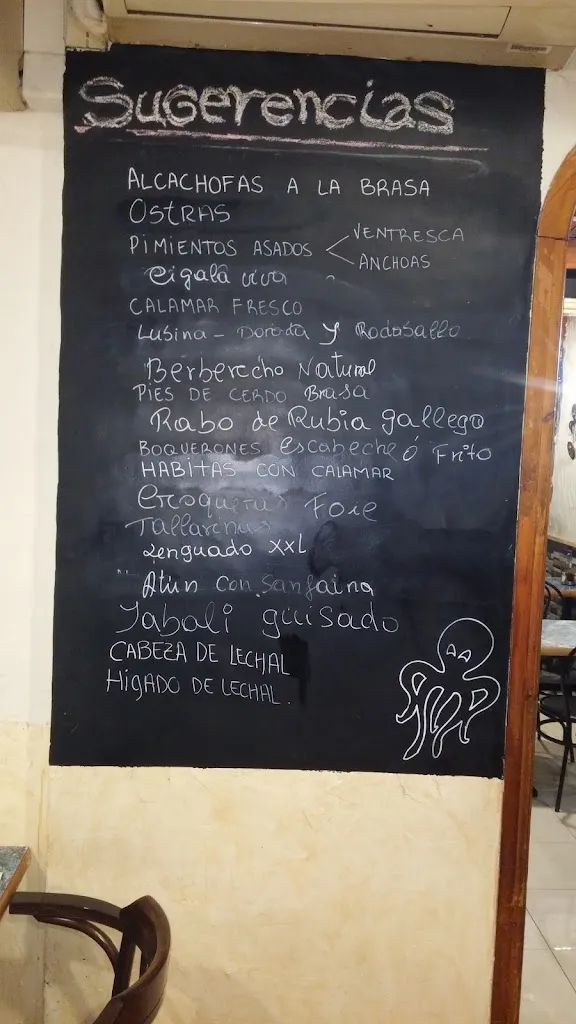 Sugerencias
ALCACHOFAS A LA BRASA
OSTRAS
PIMIENTOS ASADOS < VENTRESCA
ANCHOAS
Cigala viva
CALAMAR FRESCO
Lubina - Dorada y Rodaballo
Berberecho Natural
PIES DE CERDO Brasa
Rabo de Rubia gallega
BOQUERONES Escabeche ó Frito
HABITAS CON CALAMAR
Croquetas Foie
Tallarinas
Lenguado XXL
Atún con Sanfaina
Jabali guisado
CABEZA DE LECHAL
HIGADO DE LECHAL.